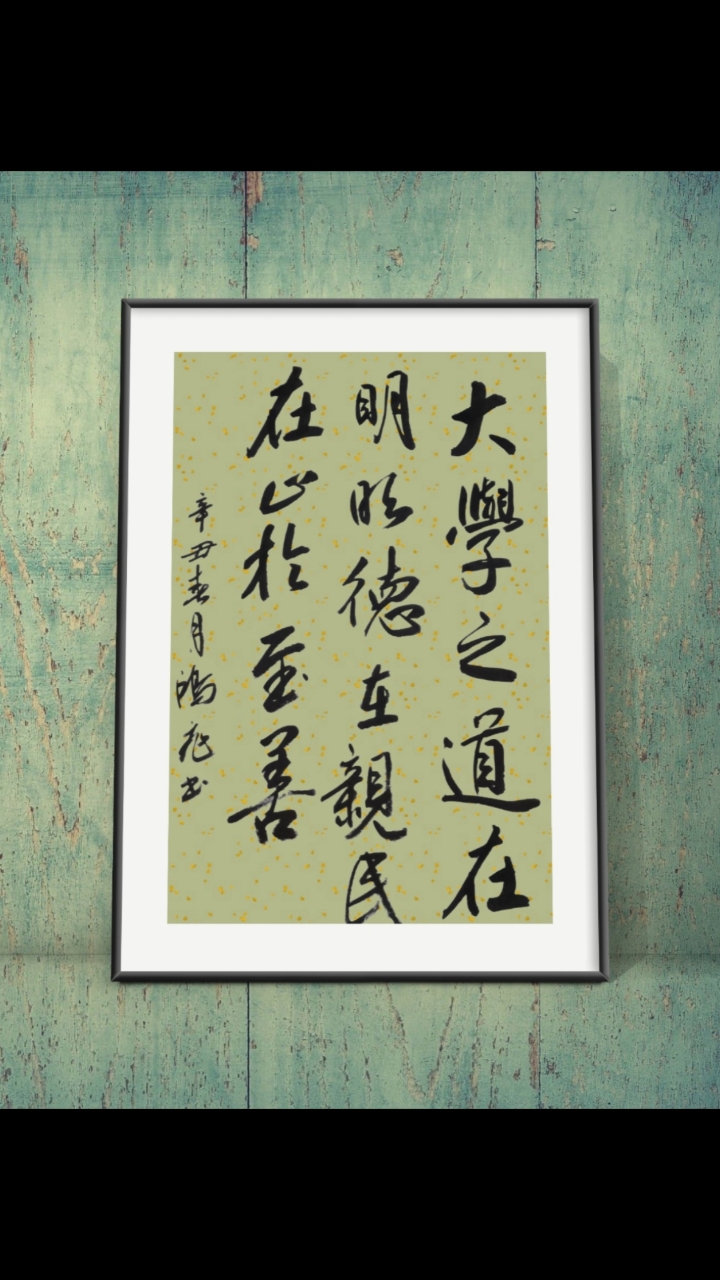 大學之道在
明明德在親民
在止於至善
辛丑春月鴻飛書